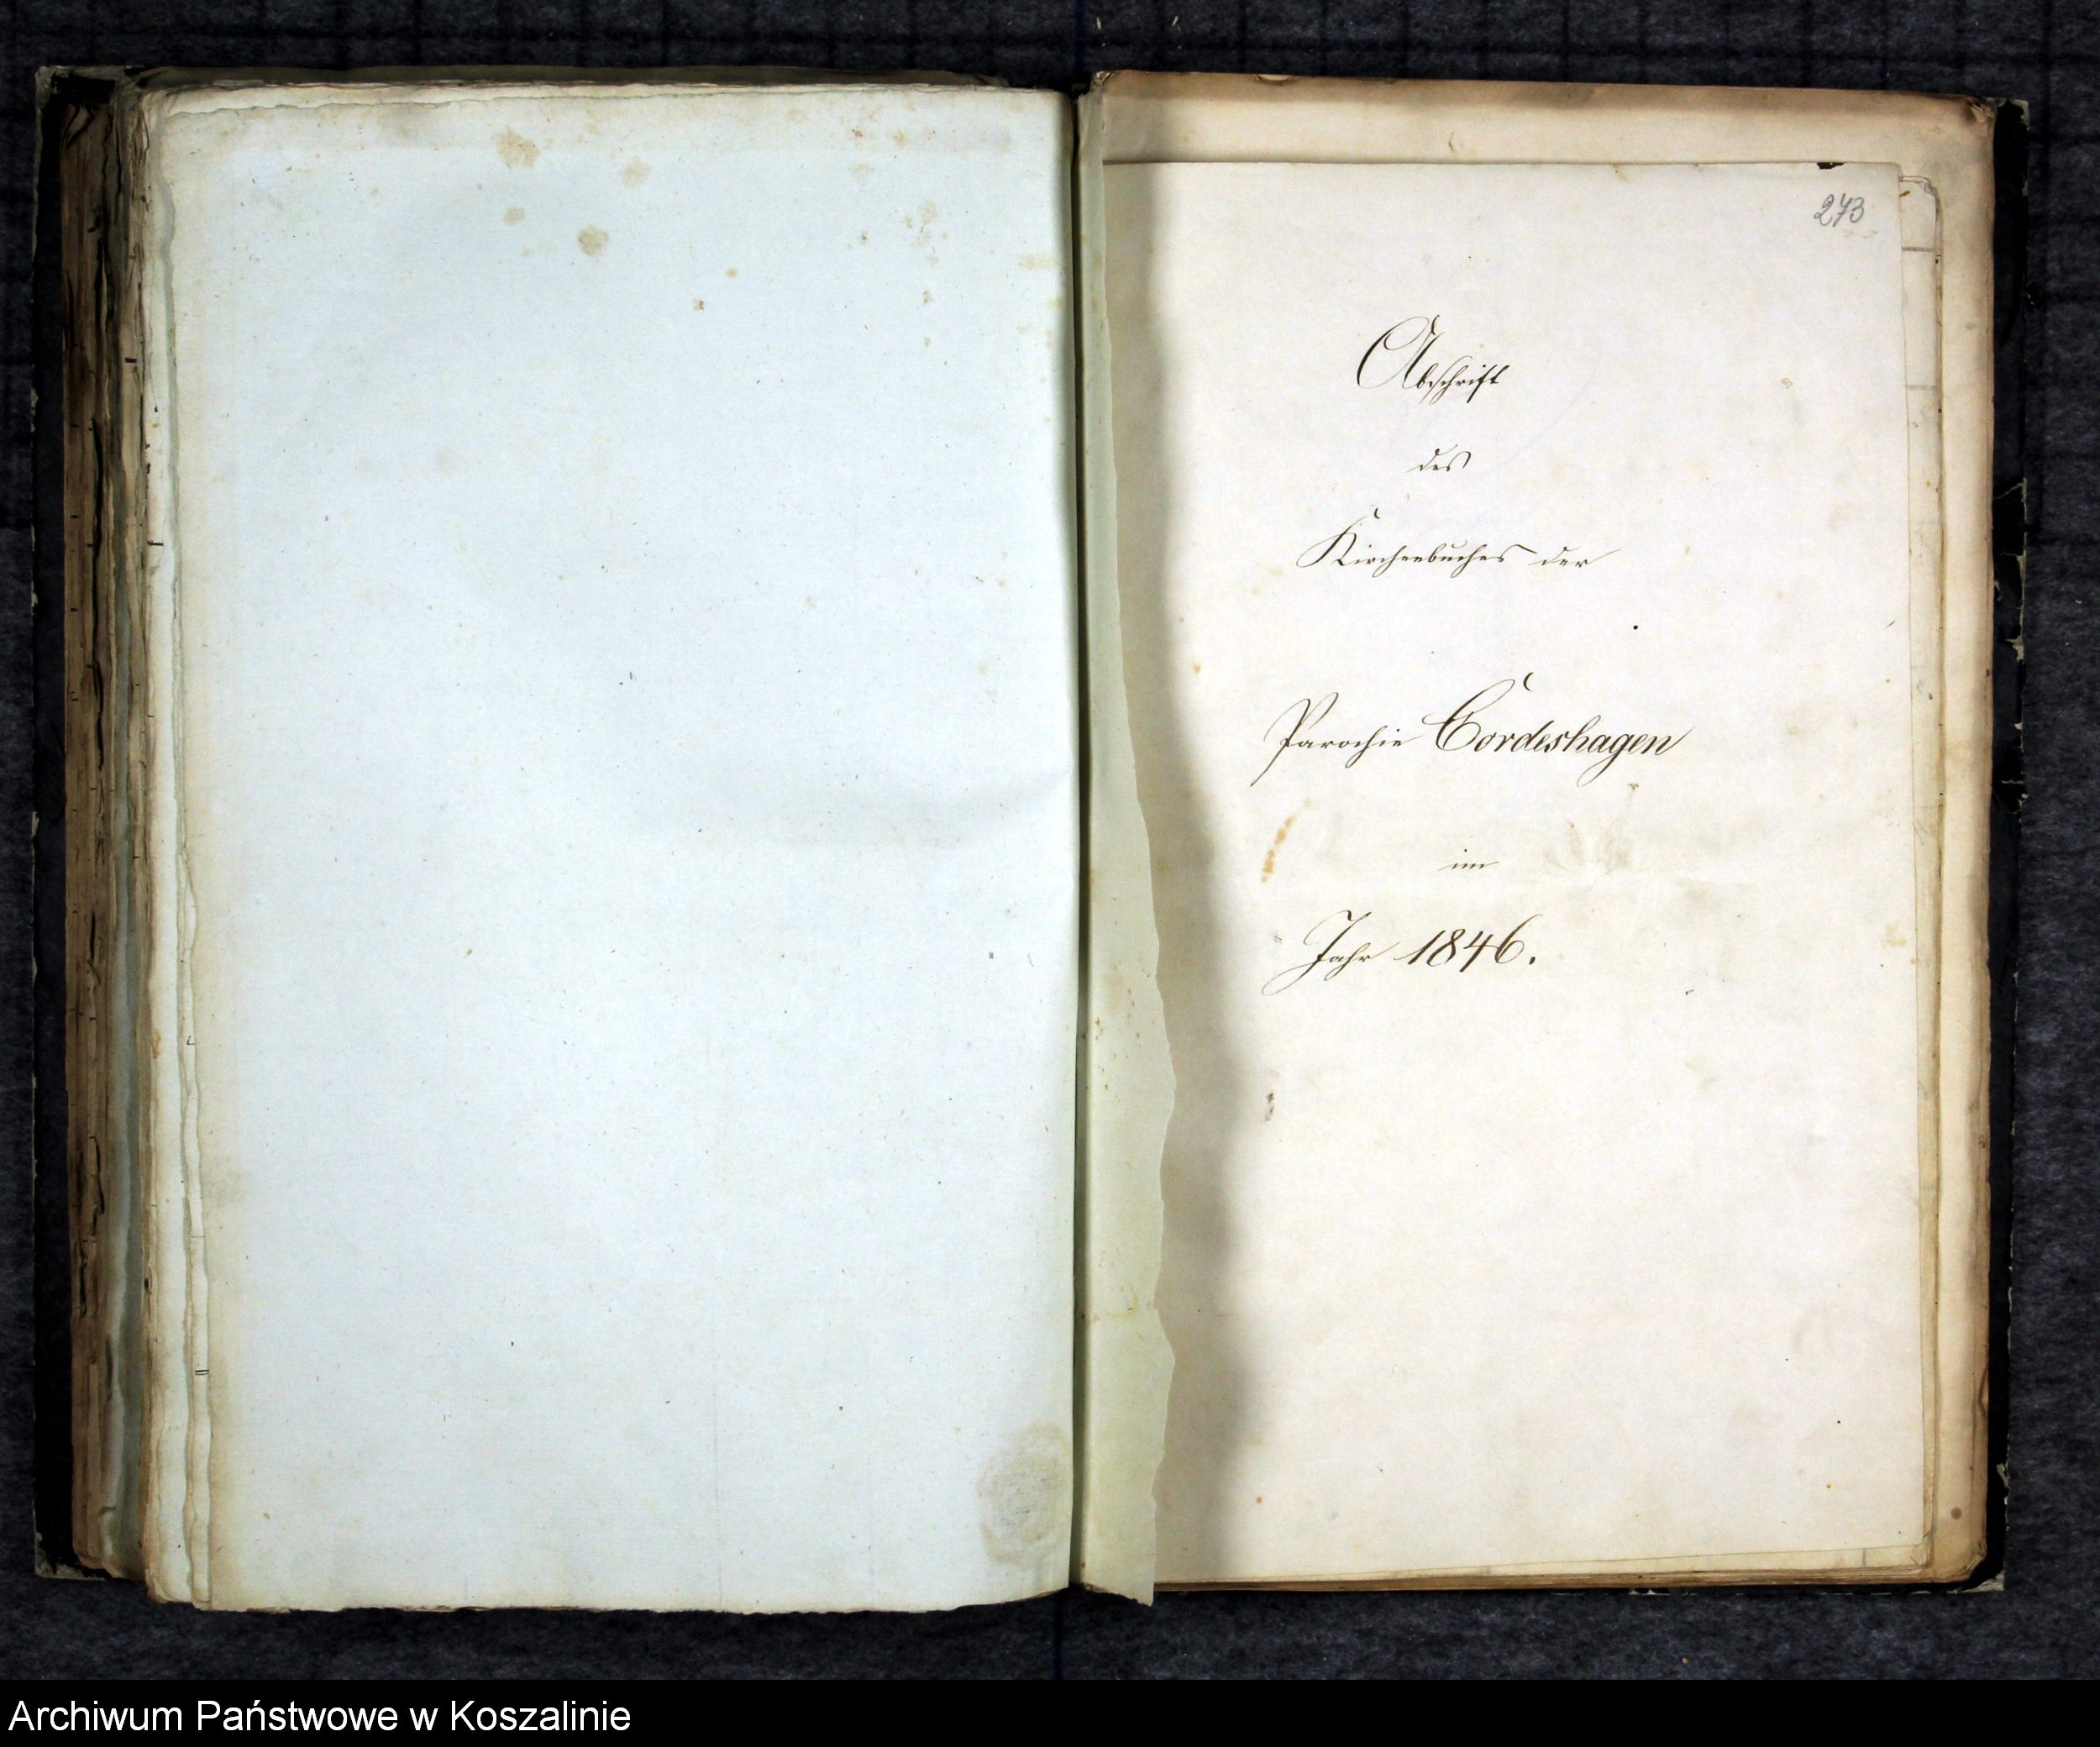 273
Abschrift
des
Kirchenbuches der
Parochie Cordeshagen
im
Jahr 1846.
Archiwum Państwowe w Koszalinie